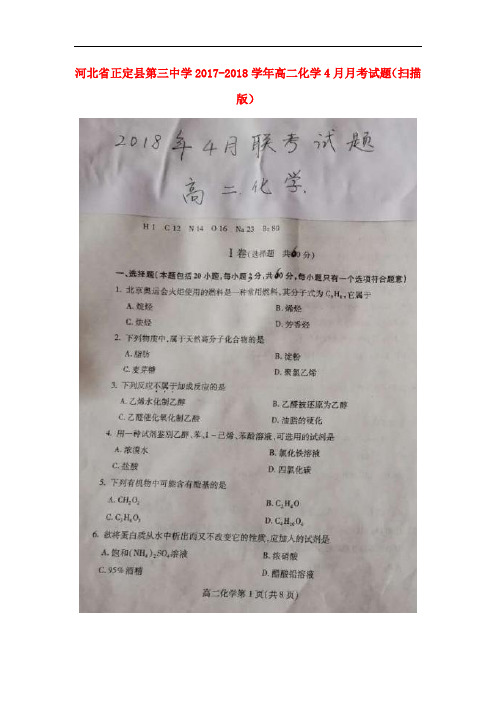 河北省正定县第三中学2017-2018学年高二化学4月月考试题(扫描
版)
2018年4月联考试题
高二化学.
H 1 C 12 N 14 O 16 Na 23 Br 80
I卷(选择题 共60分)
一、选择题(本题包括20小题,每小题3分,共60分,每小题只有一个选项符合题意)
1. 北京奥运会火炬使用的燃料是一种常用燃料,其分子式为C₃H₈,它属于
A. 烷烃 B. 烯烃
C. 炔烃 D. 芳香烃
2. 下列物质中,属于天然高分子化合物的是
A. 脂肪 B. 淀粉
C. 麦芽糖 D. 聚氯乙烯
3. 下列反应不属于加成反应的是
A. 乙烯水化制乙醇 B. 乙醛被还原为乙醇
C. 乙醛催化氧化制乙酸 D. 油脂的硬化
4. 用一种试剂鉴别乙醇、苯、1-己烯、苯酚溶液,可选用的试剂是
A. 浓溴水 B. 氯化铁溶液
C. 盐酸 D. 四氯化碳
5. 下列有机物中可能含有醛基的是
A. CH₂O₂ B. C₂H₆O
C. C₇H₈O D.
6. 欲将蛋白质从水中析出而又不改变它的性质,应加入的试剂是
A. 饱和(NH₄)₂SO₄溶液 B. 浓硝酸
C. 95%酒精 D. 醋酸铅溶液
高二化学第1页(共8页)